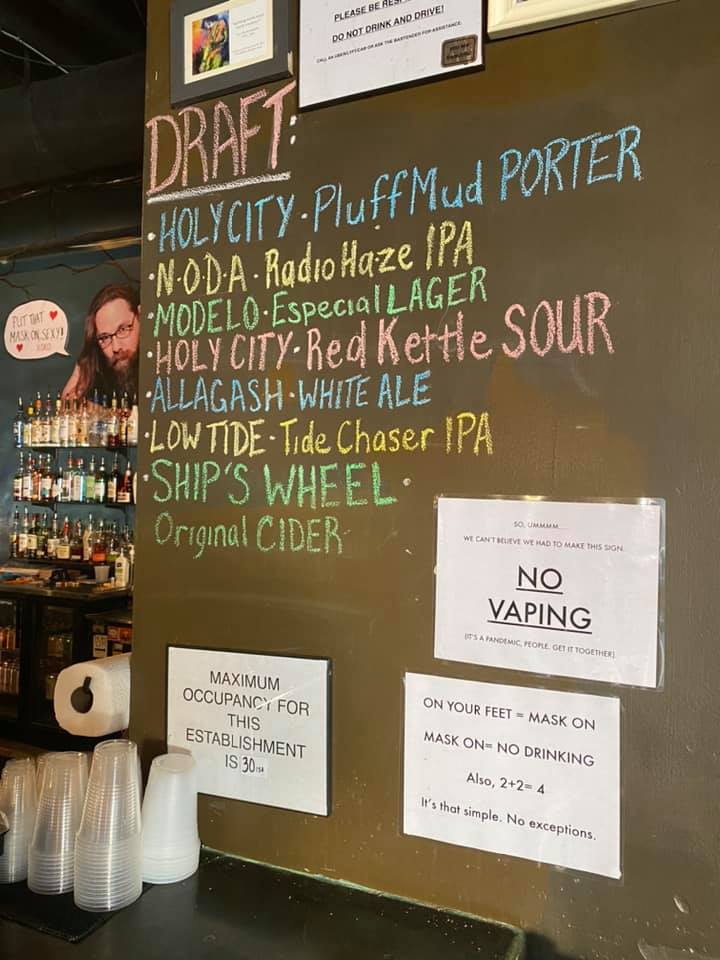 PLEASE BE
DO NOT DRINK AND DRIVE!
CALL AN UBER/LYFT/CAB OR ASK THE BARTENDER FOR ASSISTANCE.
DRAFT:
·HOLY CITY·PluffMud PORTER
·N·O·D·A·Radio Haze IPA
·MODELO·Especial LAGER
·HOLY CITY·Red Kettle SOUR
·ALLAGASH·WHITE ALE
·LOW TIDE·Tide Chaser IPA
·SHIP'S WHEEL·
Original CIDER
PUT THAT
MASK ON, SEXY!
SO, UMMMM....
WE CAN'T BELIEVE WE HAD TO MAKE THIS SIGN.
NO
VAPING
(IT'S A PANDEMIC, PEOPLE. GET IT TOGETHER)
MAXIMUM
OCCUPANCY FOR
THIS
ESTABLISHMENT
IS 30
ON YOUR FEET = MASK ON
MASK ON= NO DRINKING
Also, 2+2= 4
It's that simple. No exceptions.